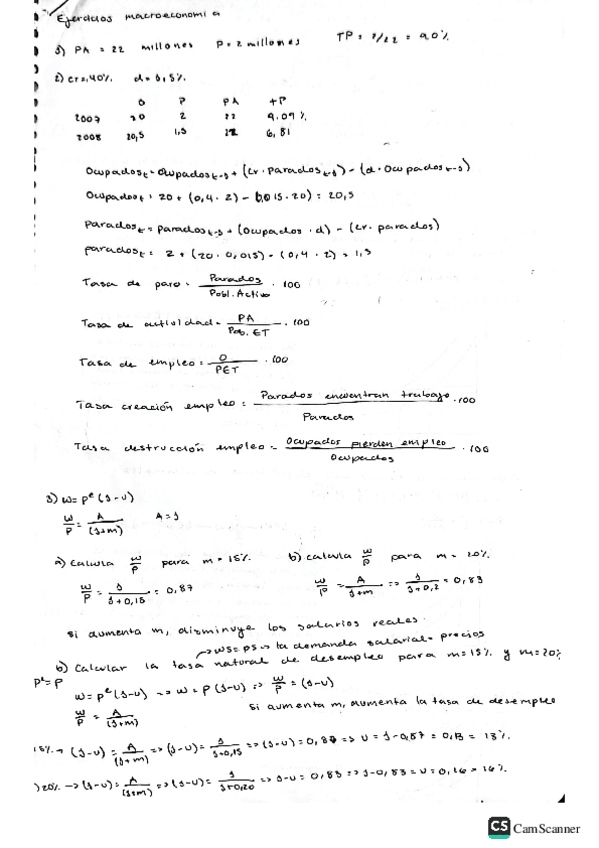 Ejercicios macroeconomia
1) PA = 22 millones P = 2 millones TP = 2/22 = 9,0%
2) cr = 40% d = 1,5%
O P PA TP
2007 20 2 22 9,09%
2008 20,5 1,5 22 6,81
Ocupados t = Ocupados t-1 + (cr · parados t-1) - (d · Ocupados t-1)
Ocupados t = 20 + (0,4 · 2) - (0,015 · 20) = 20,5
Parados t = parados t-1 + (ocupados · d) - (cr · parados)
parados t = 2 + (20 · 0,015) - (0,4 · 2) = 1,5
Tasa de paro = Parados / Pobl. Activa · 100
Tasa de actividad = PA / Pob. ET · 100
Tasa de empleo = O / PET · 100
Tasa creación empleo = Parados encuentran trabajo / Parados · 100
Tasa destrucción empleo = Ocupados pierden empleo / Ocupados · 100
3) w = p^e (1-u)
w/p = A/(1+m) A = 1
a) Calcula w/p para m = 15% b) calcula w/p para m = 20%
w/p = 1/1+0,15 = 0,87 w/p = A/1+m => 1/1+0,2 = 0,83
si aumenta m, disminuye los salarios reales
→ ws = ps → la demanda salarial = precios
b) Calcular la tasa natural de desempleo para m=15% y m=20%
p^e = p w = p^e (1-u) → w = p (1-u) => w/p = (1-u)
w/p = A/(1+m) si aumenta m, aumenta la tasa de desempleo
15% → (1-u) = A/(1+m) => (1-u) = 1/1+0,15 => (1-u) = 0,87 => u = 1-0,87 = 0,13 = 13%
20% → (1-u) = A/(1+m) => (1-u) = 1/1+0,20 => 1-u = 0,83 => 1-0,83 = u = 0,16 → 16%.
CS CamScanner